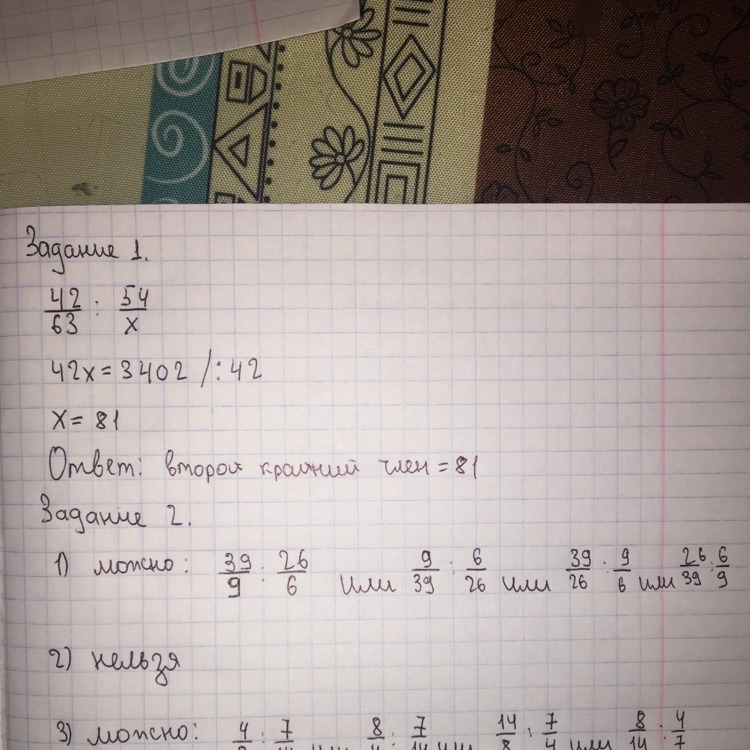 Задание 1.
42/63 : 54/x
42x = 3402 /:42
x = 81
Ответ: второй крайний член = 81
Задание 2.
1) можно: 39/9 : 26/6 или 9/39 : 6/26 или 39/26 : 9/6 или 26/39 : 6/9
2) нельзя
3) можно: 4 : 7 8 : 7 или 14 : 7/4 или 8/14 : 4/7